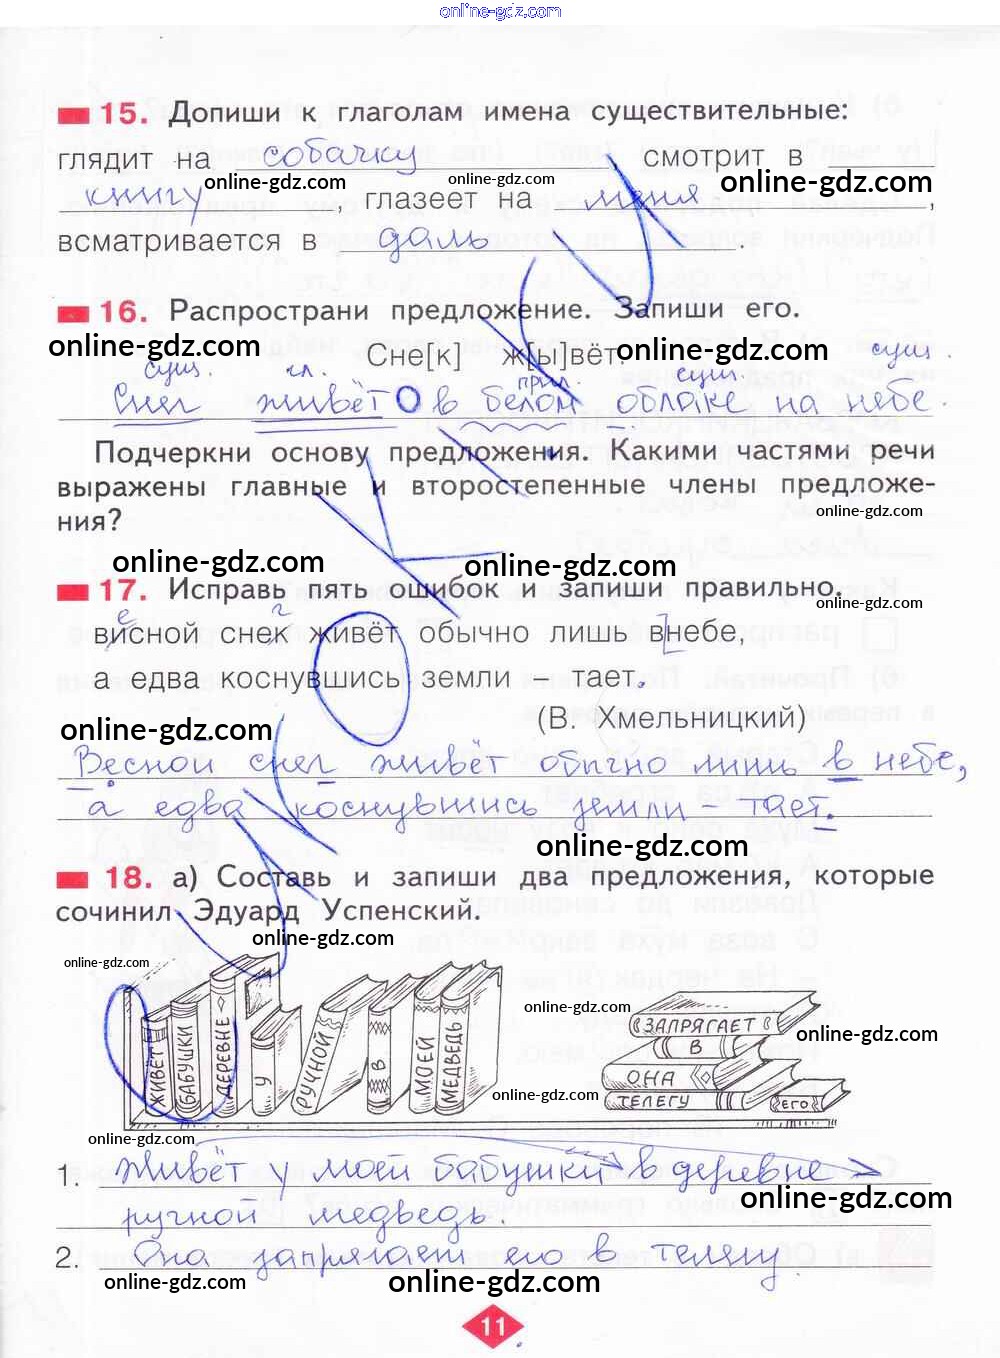 online-gdz.com
15. Допиши к глаголам имена существительные:
глядит на собачку, смотрит в
online-gdz.com online-gdz.com online-gdz.com
книгу, глазеет на меня,
всматривается в даль.
16. Распространи предложение. Запиши его.
online-gdz.com Сне[к] ж[ы]вёт. online-gdz.com
сущ. гл. прил. сущ. сущ.
Снег живёт в белом облаке на небе.
Подчеркни основу предложения. Какими частями речи
выражены главные и второстепенные члены предложе-
ния?
online-gdz.com
online-gdz.com online-gdz.com
17. Исправь пять ошибок и запиши правильно.
е г
висной снек живёт обычно лишь внебе,
а едва коснувшись земли – тает.
(В. Хмельницкий)
online-gdz.com
Весной снег живёт обычно лишь в небе,
а едва коснувшись земли – тает.
online-gdz.com
18. а) Составь и запиши два предложения, которые
сочинил Эдуард Успенский.
online-gdz.com
online-gdz.com
ЖИВЁТ БАБУШКИ ДЕРЕВНЕ У РУЧНОЙ В МОЕЙ МЕДВЕДЬ
online-gdz.com
ЗАПРЯГАЕТ
online-gdz.com
В
ОНА
online-gdz.com
ТЕЛЕГУ ЕГО
online-gdz.com
1. Живёт у моей бабушки в деревне
online-gdz.com
ручной медведь.
2. Она запрягает его в телегу.
online-gdz.com online-gdz.com
11